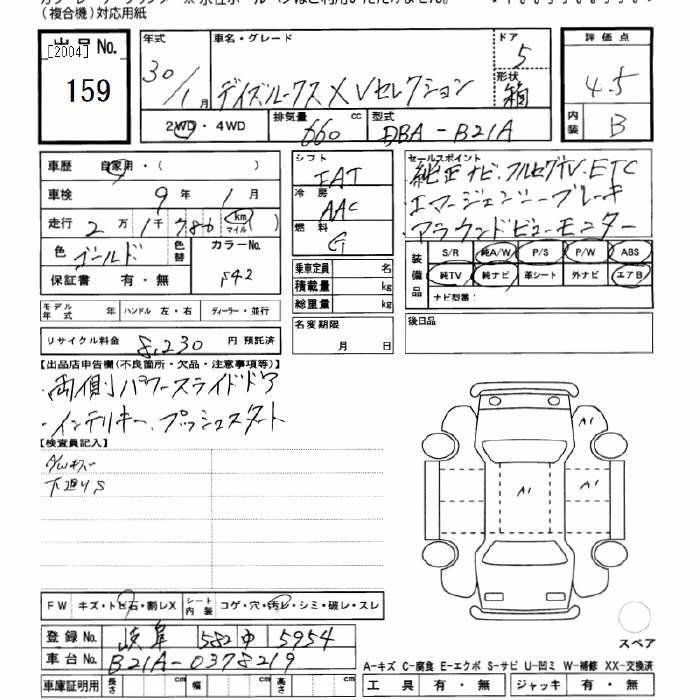 (複合機)対応用紙
出品No.
[2004]
159
年式 30/1月
車名・グレード
デイズルークス X Vセレクション
ドア 5
形状 箱
評価点
4.5
内装 B
2WD・4WD
排気量 660 cc
型式 DBA-B21A
車歴 自家用・( )
車検 9年 1月
走行 2万1千786 km マイル
色 ゴールド 色替
カラーNo. S42
保証書 有・無
シフト IAT
冷房 AAC
燃料 G
乗車定員 名
積載量 kg
総重量 kg
セールスポイント
・純正ナビ、フルセグTV、ETC
・エマージェンシーブレーキ
・アラウンドビューモニター
装備品
S/R 純A/W P/S P/W ABS
純TV 純ナビ 革シート 外ナビ エアB
ナビ型番:
モデル年式 年 ハンドル 左・右 ディーラー・並行
名変期限 月 日
後日品
リサイクル料金 8,230 円 預託済
【出品店申告欄(不良箇所・欠品・注意事項等)】
・両側パワースライドドア
・インテリキー、プッシュスタート
【検査員記入】
下廻りS
A1
A1
A1
FW キズ・トビ石・割レX シート内装 コゲ・穴・汚レ・シミ・破レ・スレ
登録No. 岐阜 582 中 5954
車台No. B21A-0378219
スペア
A-キズ C-腐食 E-エクボ S-サビ U-凹ミ W-補修 XX-交換済
車庫証明用 長さ cm 幅 cm 高さ cm
工具 有・無 ジャッキ 有・無